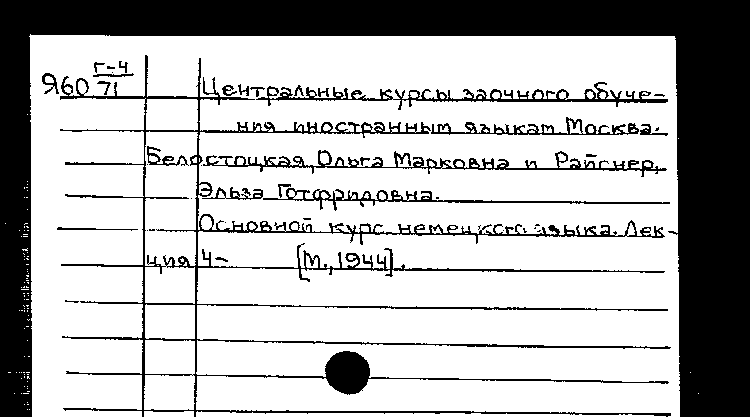 Я60 Г-4/71 Центральные курсы заочного обуче-
ния иностранным языкам Москва.
Белостоцкая, Ольга Марковна и Райснер,
Эльза Готфридовна.
Основной курс немецкого языка. Лек-
ция 4- [М., 1944].